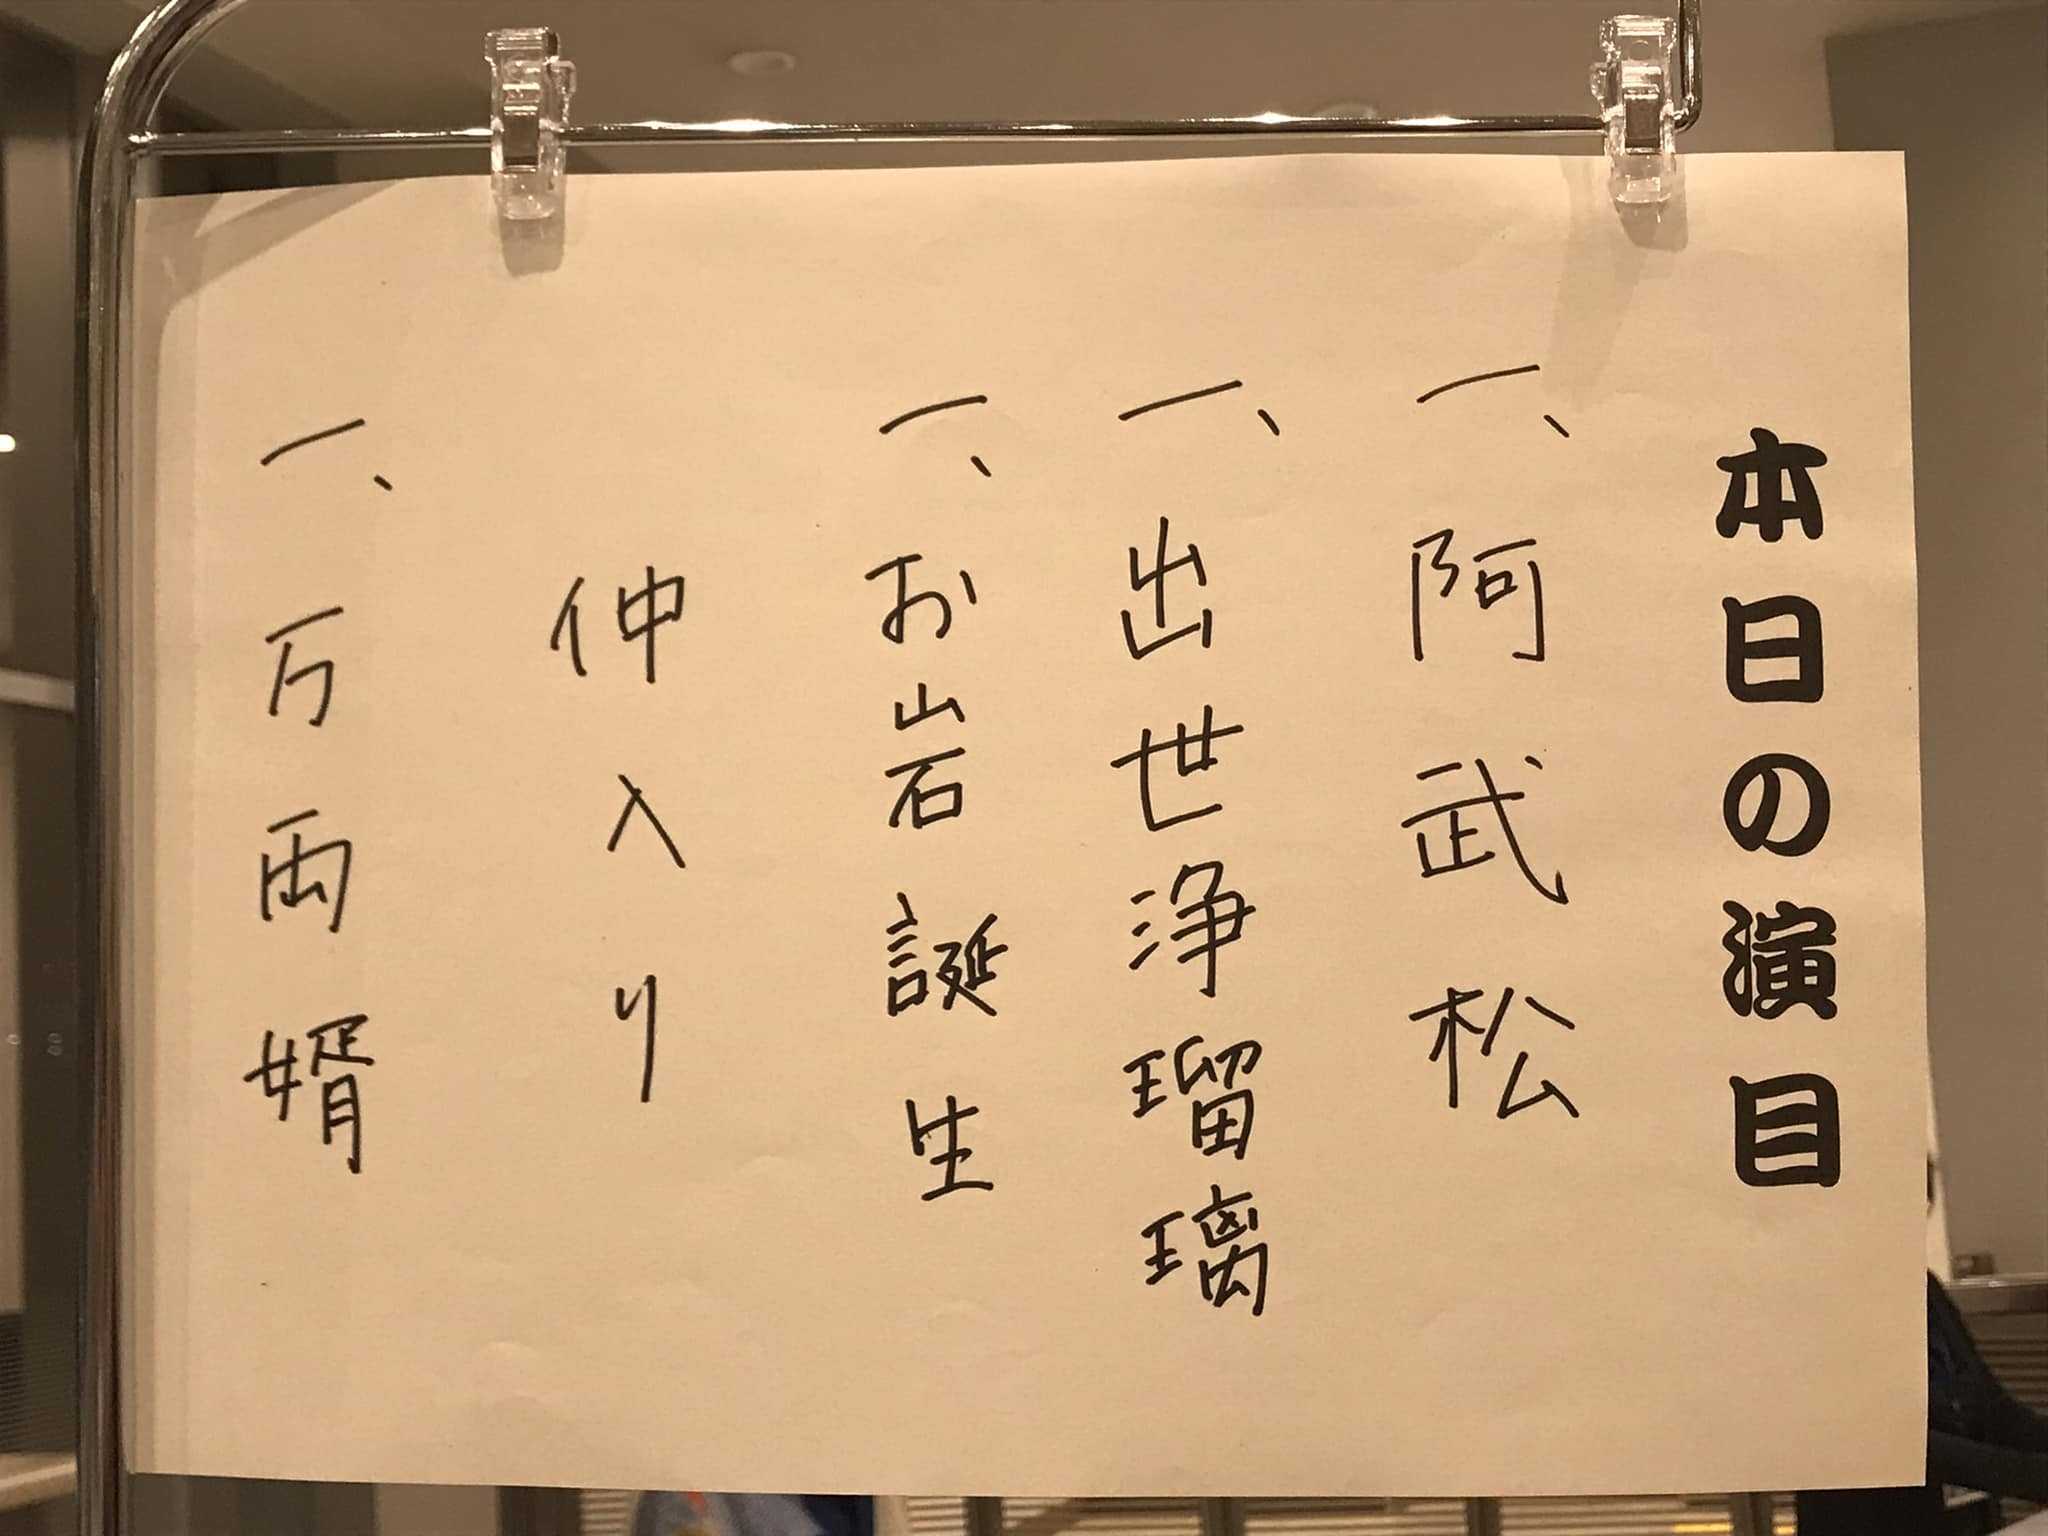 本日の演目
一、阿武松
一、出世浄瑠璃
一、お岩誕生
仲入り
一、万両婿